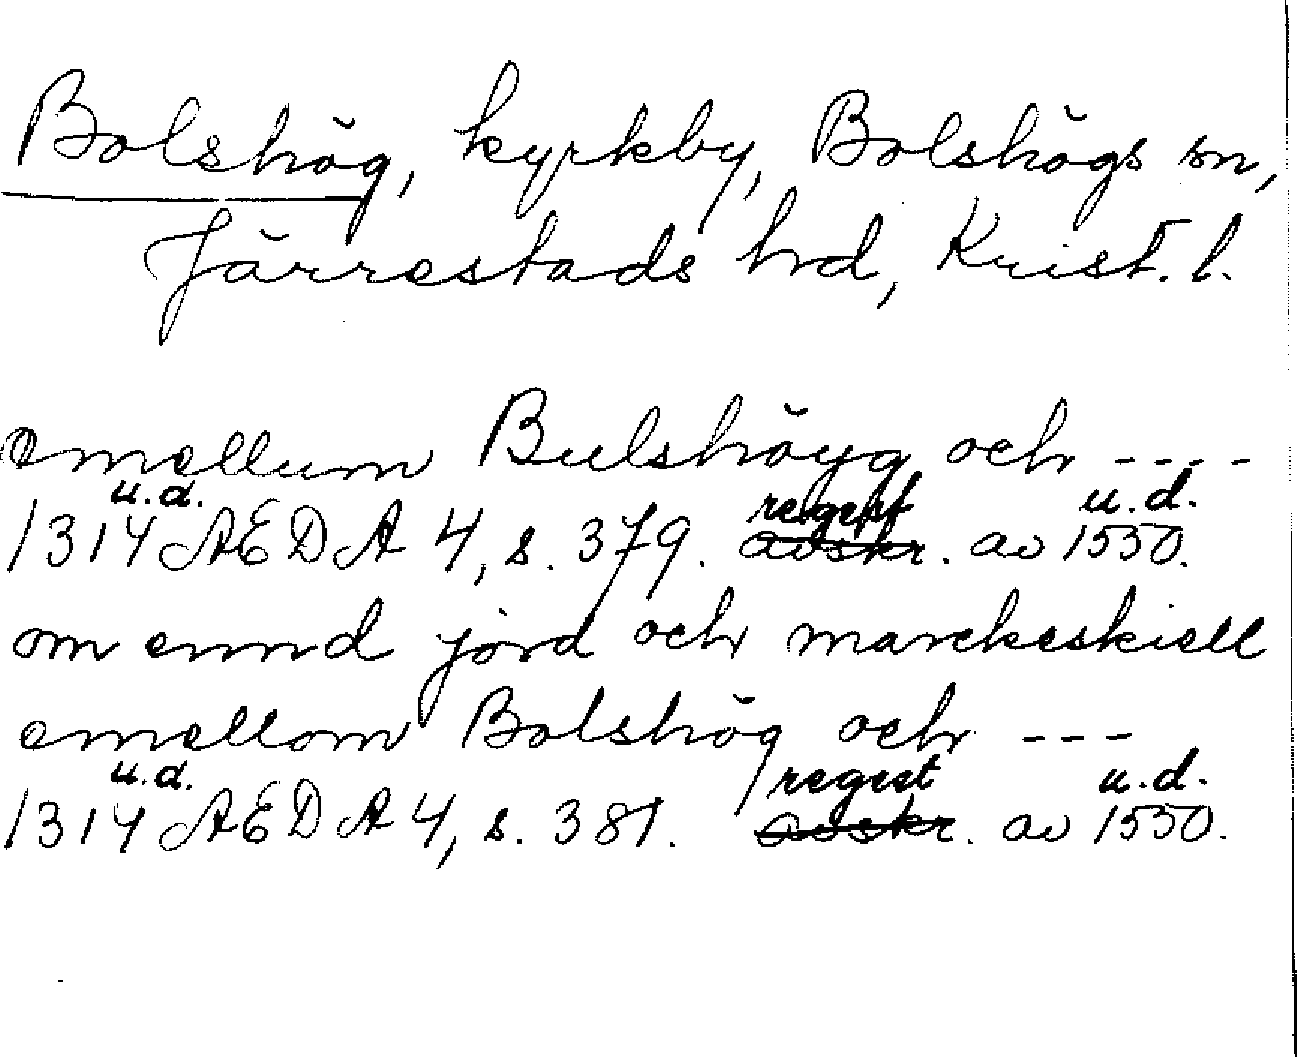 Bolshög, kyrkby, Bolshögs sn,
Järrestads hd, Krist. l.
emellum Bulshöyg och ----
u.d.
1314 AEDA 4, s. 379. regest avskr. av 1550. u.d.
om ennd jord och marckeskiell
emellom Bolshög och ---
u.d.
1314 AEDA 4, s. 381. regest avskr. av 1550. u.d.